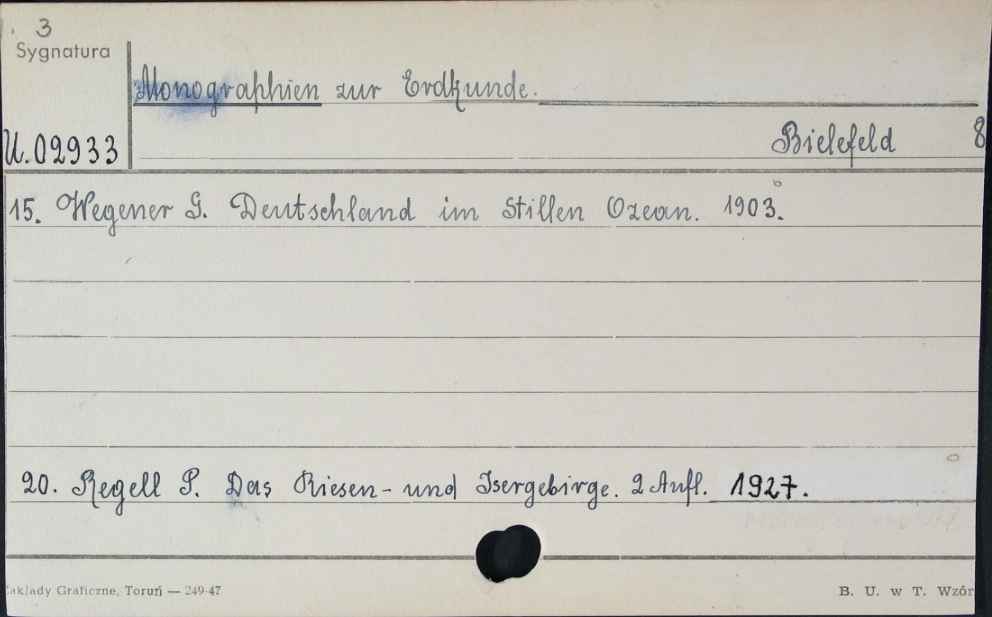 3
Sygnatura
Monographien zur Erdkunde.
U.02933
Bielefeld 8
15. Wegener G. Deutschland im Stillen Ozean. 1903.
20. Regell P. Das Riesen- und Isergebirge. 2 Aufl. 1927.
akłady Graficzne, Toruń — 249-47
B. U. w T. Wzór